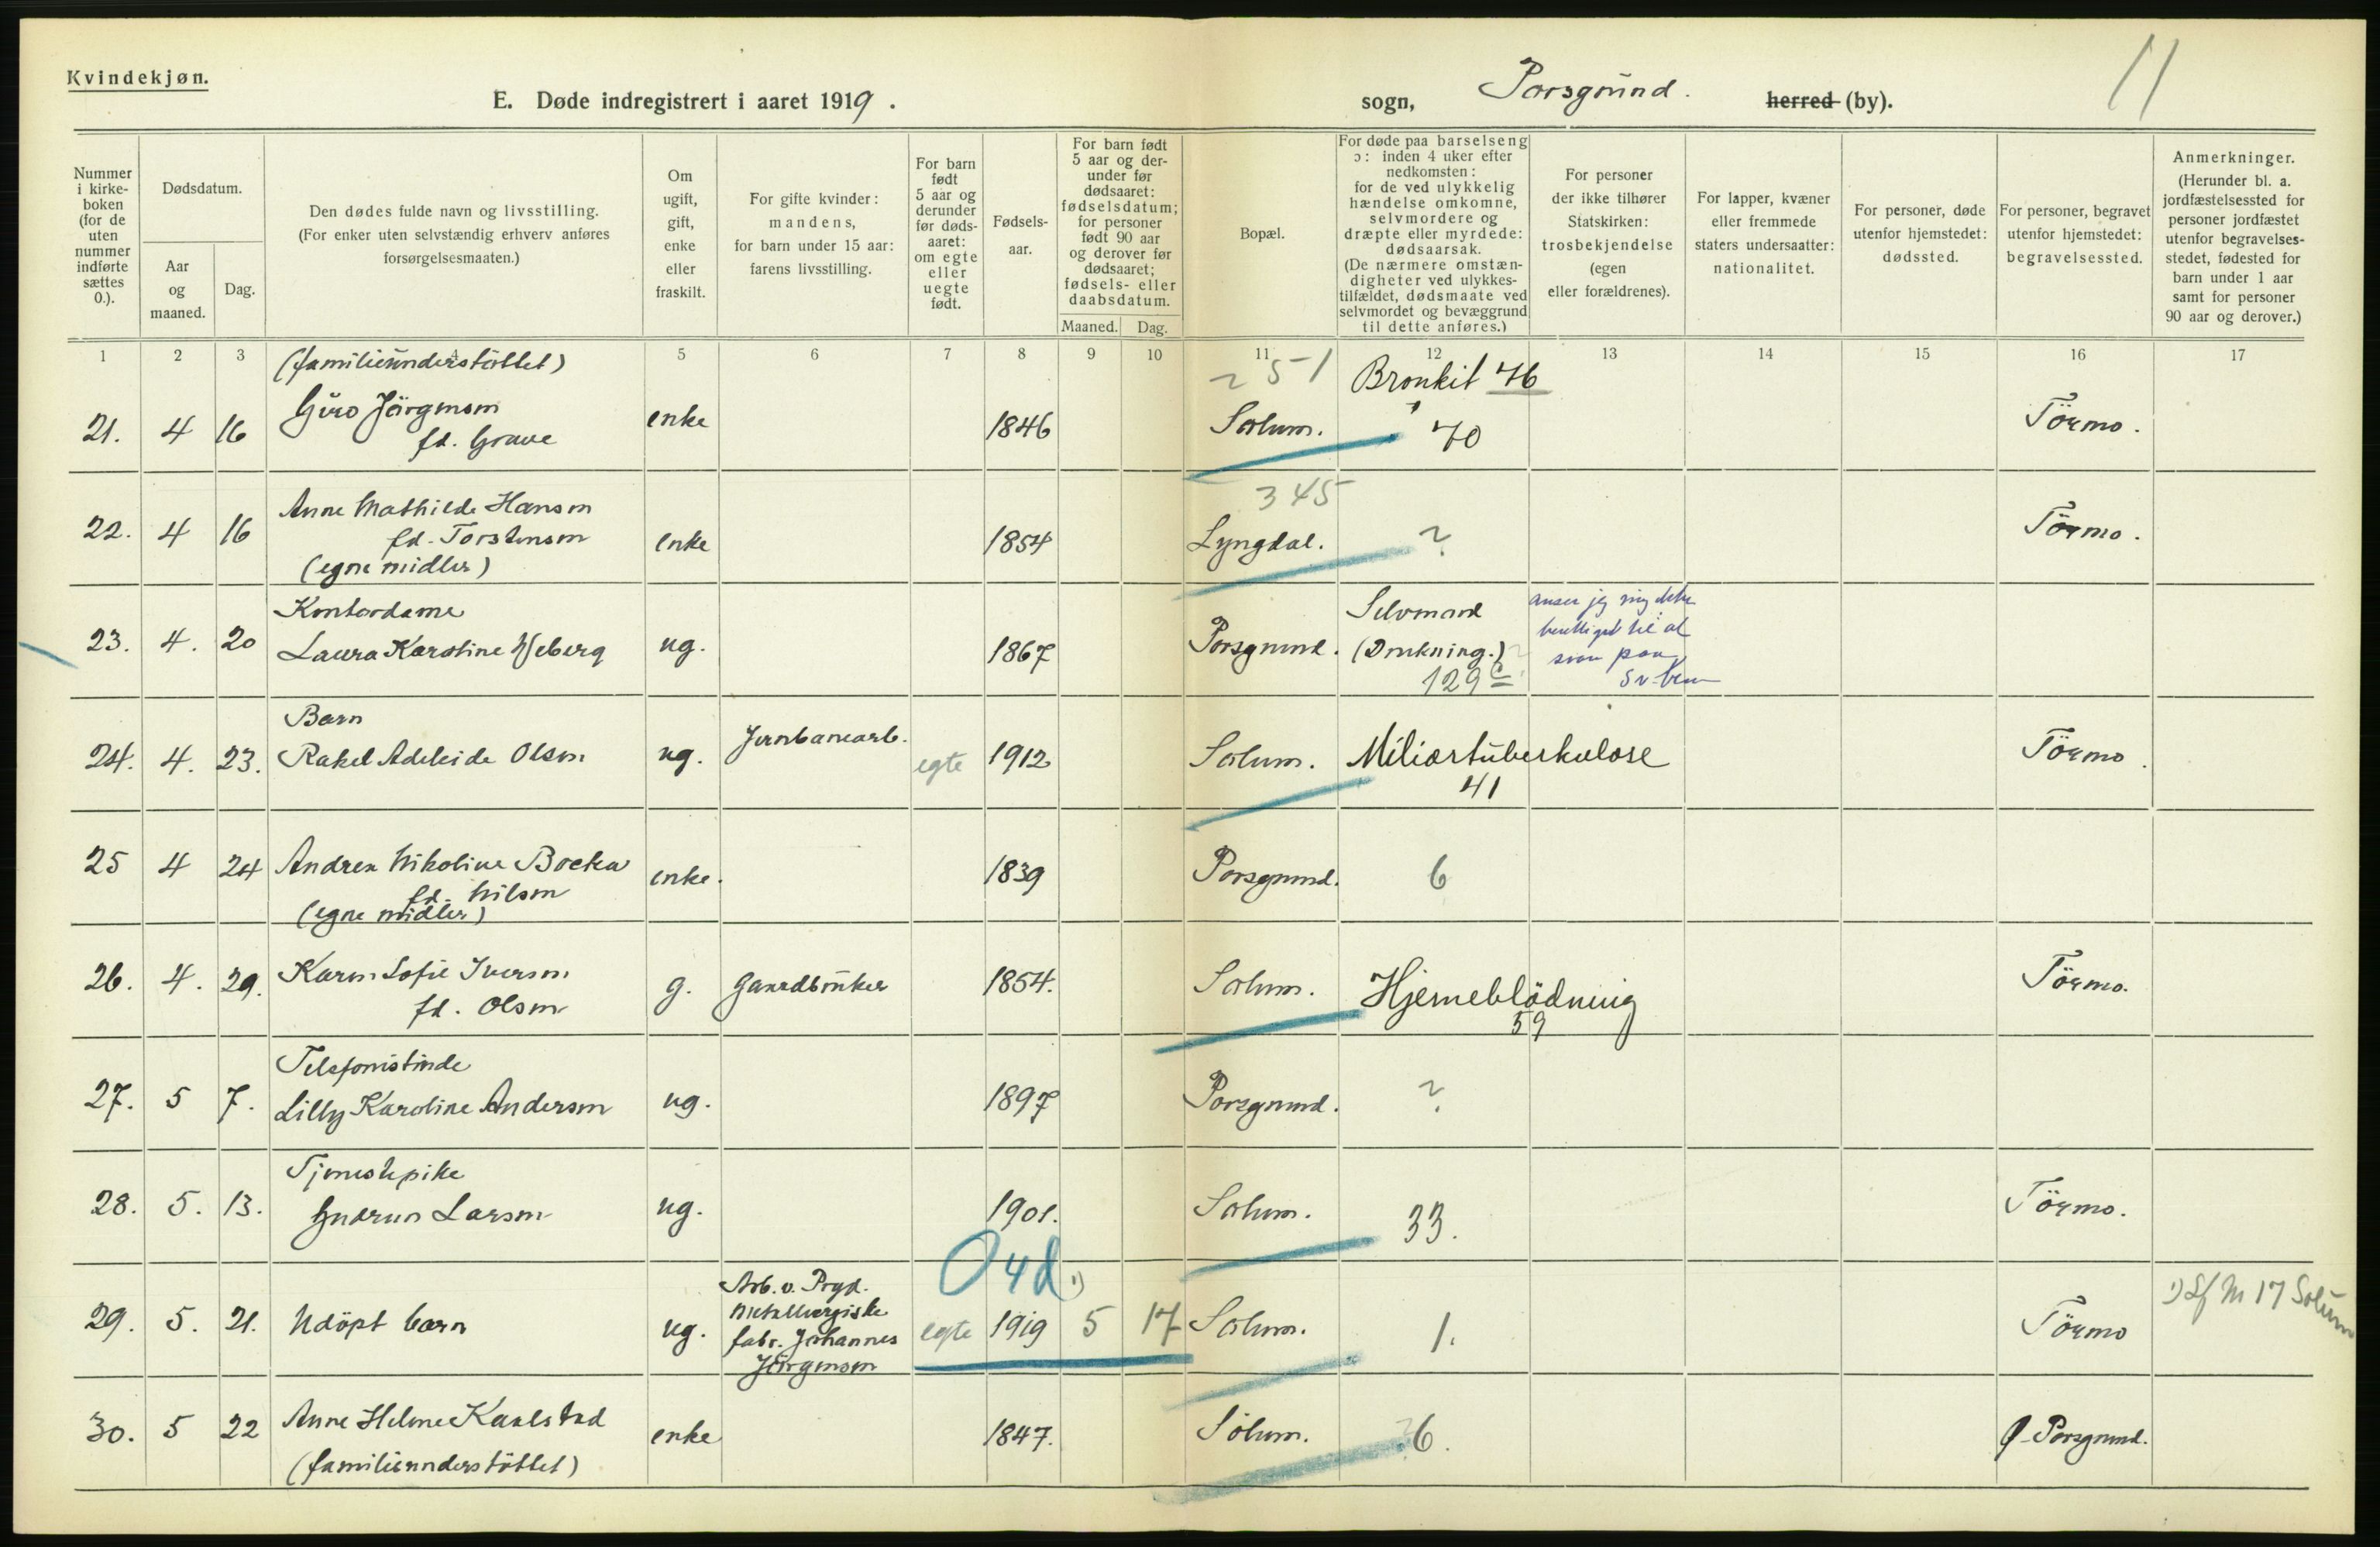 Kvindekjøn.
E. Døde indregistrert i aaret 1919.
sogn, Porsgrund. herred (by).
11
Nummer i kirkeboken (for de uten nummer indførte sættes 0.).
Dødsdatum.
Aar og maaned.
Dag.
Den dødes fulde navn og livsstilling.
(For enker uten selvstændig erhverv anføres forsørgelsesmaaten.)
Om ugift, gift, enke eller fraskilt.
For gifte kvinder: mandens, for barn under 15 aar: farens livsstilling.
For barn født 5 aar og derunder før dødsaaret: om egte eller uegte født.
Fødselsaar.
For barn født 5 aar og derunder før dødsaaret: fødselsdatum; for personer født 90 aar og derover før dødsaaret; fødsels- eller daabsdatum.
Maaned. Dag.
Bopæl.
For døde paa barselseng ɔ: inden 4 uker efter nedkomsten: for de ved ulykkelig hændelse omkomne, selvmordere og dræpte eller myrdede: dødsaarsak.
(De nærmere omstændigheter ved ulykkestilfældet, dødsmaate ved selvmordet og bevæggrund til dette anføres.)
For personer der ikke tilhører Statskirken: trosbekjendelse (egen eller forældrenes).
For lapper, kvæner eller fremmede staters undersaatter: nationalitet.
For personer, døde utenfor hjemstedet: dødssted.
For personer, begravet utenfor hjemstedet: begravelsessted.
Anmerkninger.
(Herunder bl. a. jordfæstelsessted for personer jordfæstet utenfor begravelsesstedet, fødested for barn under 1 aar samt for personer 90 aar og derover.)
1 2 3 4 5 6 7 8 9 10 11 12 13 14 15 16 17
(familieunderstöttet) 251 Bronkit 76
21. 4 16 Guro Jörgensen enke 1846 Solum. 70 Törmo.
fd. Grave
345
22. 4 16 Anne Mathilde Hansen
fd. Torstensen enke 1854 Lyngdal. ? Törmo.
(egne midler)
Kontordame Selvmord anser jeg mig ikke
23. 4. 20 Laura Karoline Weberg ug. 1867 Porsgrund. (Drukning.) berettiget til at
129 svare paa
Barn
24. 4. 23. Rakel Adeleide Olsen ug. Jernbanearb. egte 1912 Solum. Miliærtuberkulose Törmo.
41
25 4 24 Andrea Nikoline Bocka enke. 1839 Porsgrund. 6
fd. Nilsen
(egne midler)
26. 4. 29. Karen Sofie Iversen g. Gaardbruker 1854. Solum. Hjerneblödning Törmo.
fd. Olsen 59
Telefonistinde
27. 5 7. Lilly Karoline Andersen ug. 1897 Porsgrund. ?
Tjenestepike
28. 5. 13. Gudrun Larsen ug. 1901. Solum. 33. Törmo.
Arb. v. Prgd. 1) Sf M 17 Solum
29. 5. 21. Udöpt barn ug. metallurgiske
fabr. Johannes egte 1919 5 17 Solum. 1. Törmo
Jörgensen
30. 5 22 Anne Helene Karlstad enke 1847. Solum. 6. Ø-Porsgrund.
(familieunderstöttet)